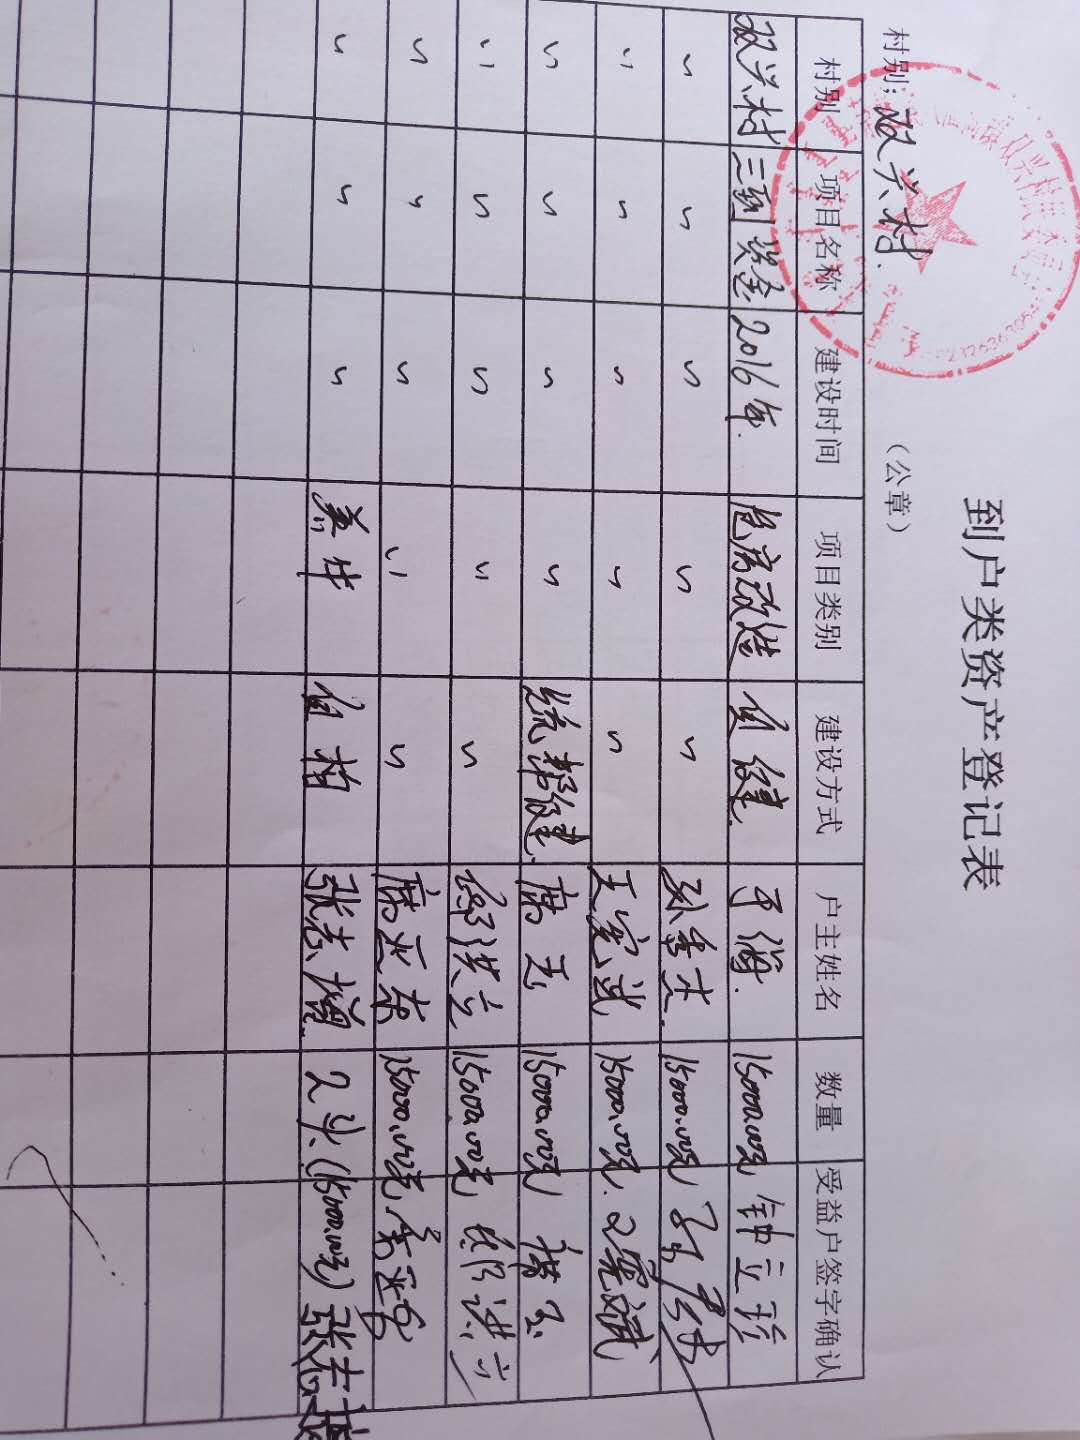 到户类资产登记表
村别：双兴村 （公章）
村别 项目名称 建设时间 项目类别 建设方式 户主姓名 数量 受益户签字确认
双兴村 三到资金 2016年 危房改造 自建 于海 15000.00元 钟立珍
〃 〃 〃 〃 〃 15000.00元
〃 〃 〃 〃 〃 王宪武 15000.00元
〃 〃 〃 〃 统帮建 席玉 15000.00元
〃 〃 〃 〃 〃 徐洪立 15000.00元 徐洪立
〃 〃 〃 〃 〃 席亚东 15000.00元
〃 〃 〃 养牛 自购 张志增 2头(15000.00元) 张志增